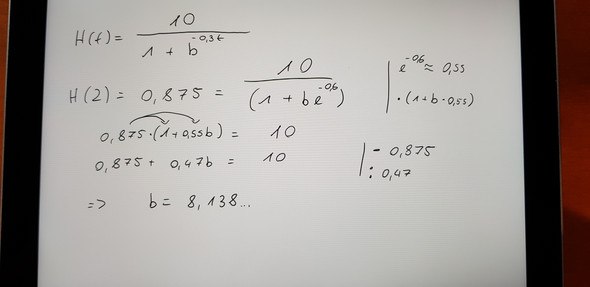 H(t) = 10 / (1 + b^-0,3t)
H(2) = 0,875 = 10 / (1 + be^-0,6) | e^-0,6 ≈ 0,55
| · (1+b·0,55)
0,875·(1+0,55b) = 10
0,875 + 0,47b = 10 | - 0,875
| : 0,47
=> b = 8,138...